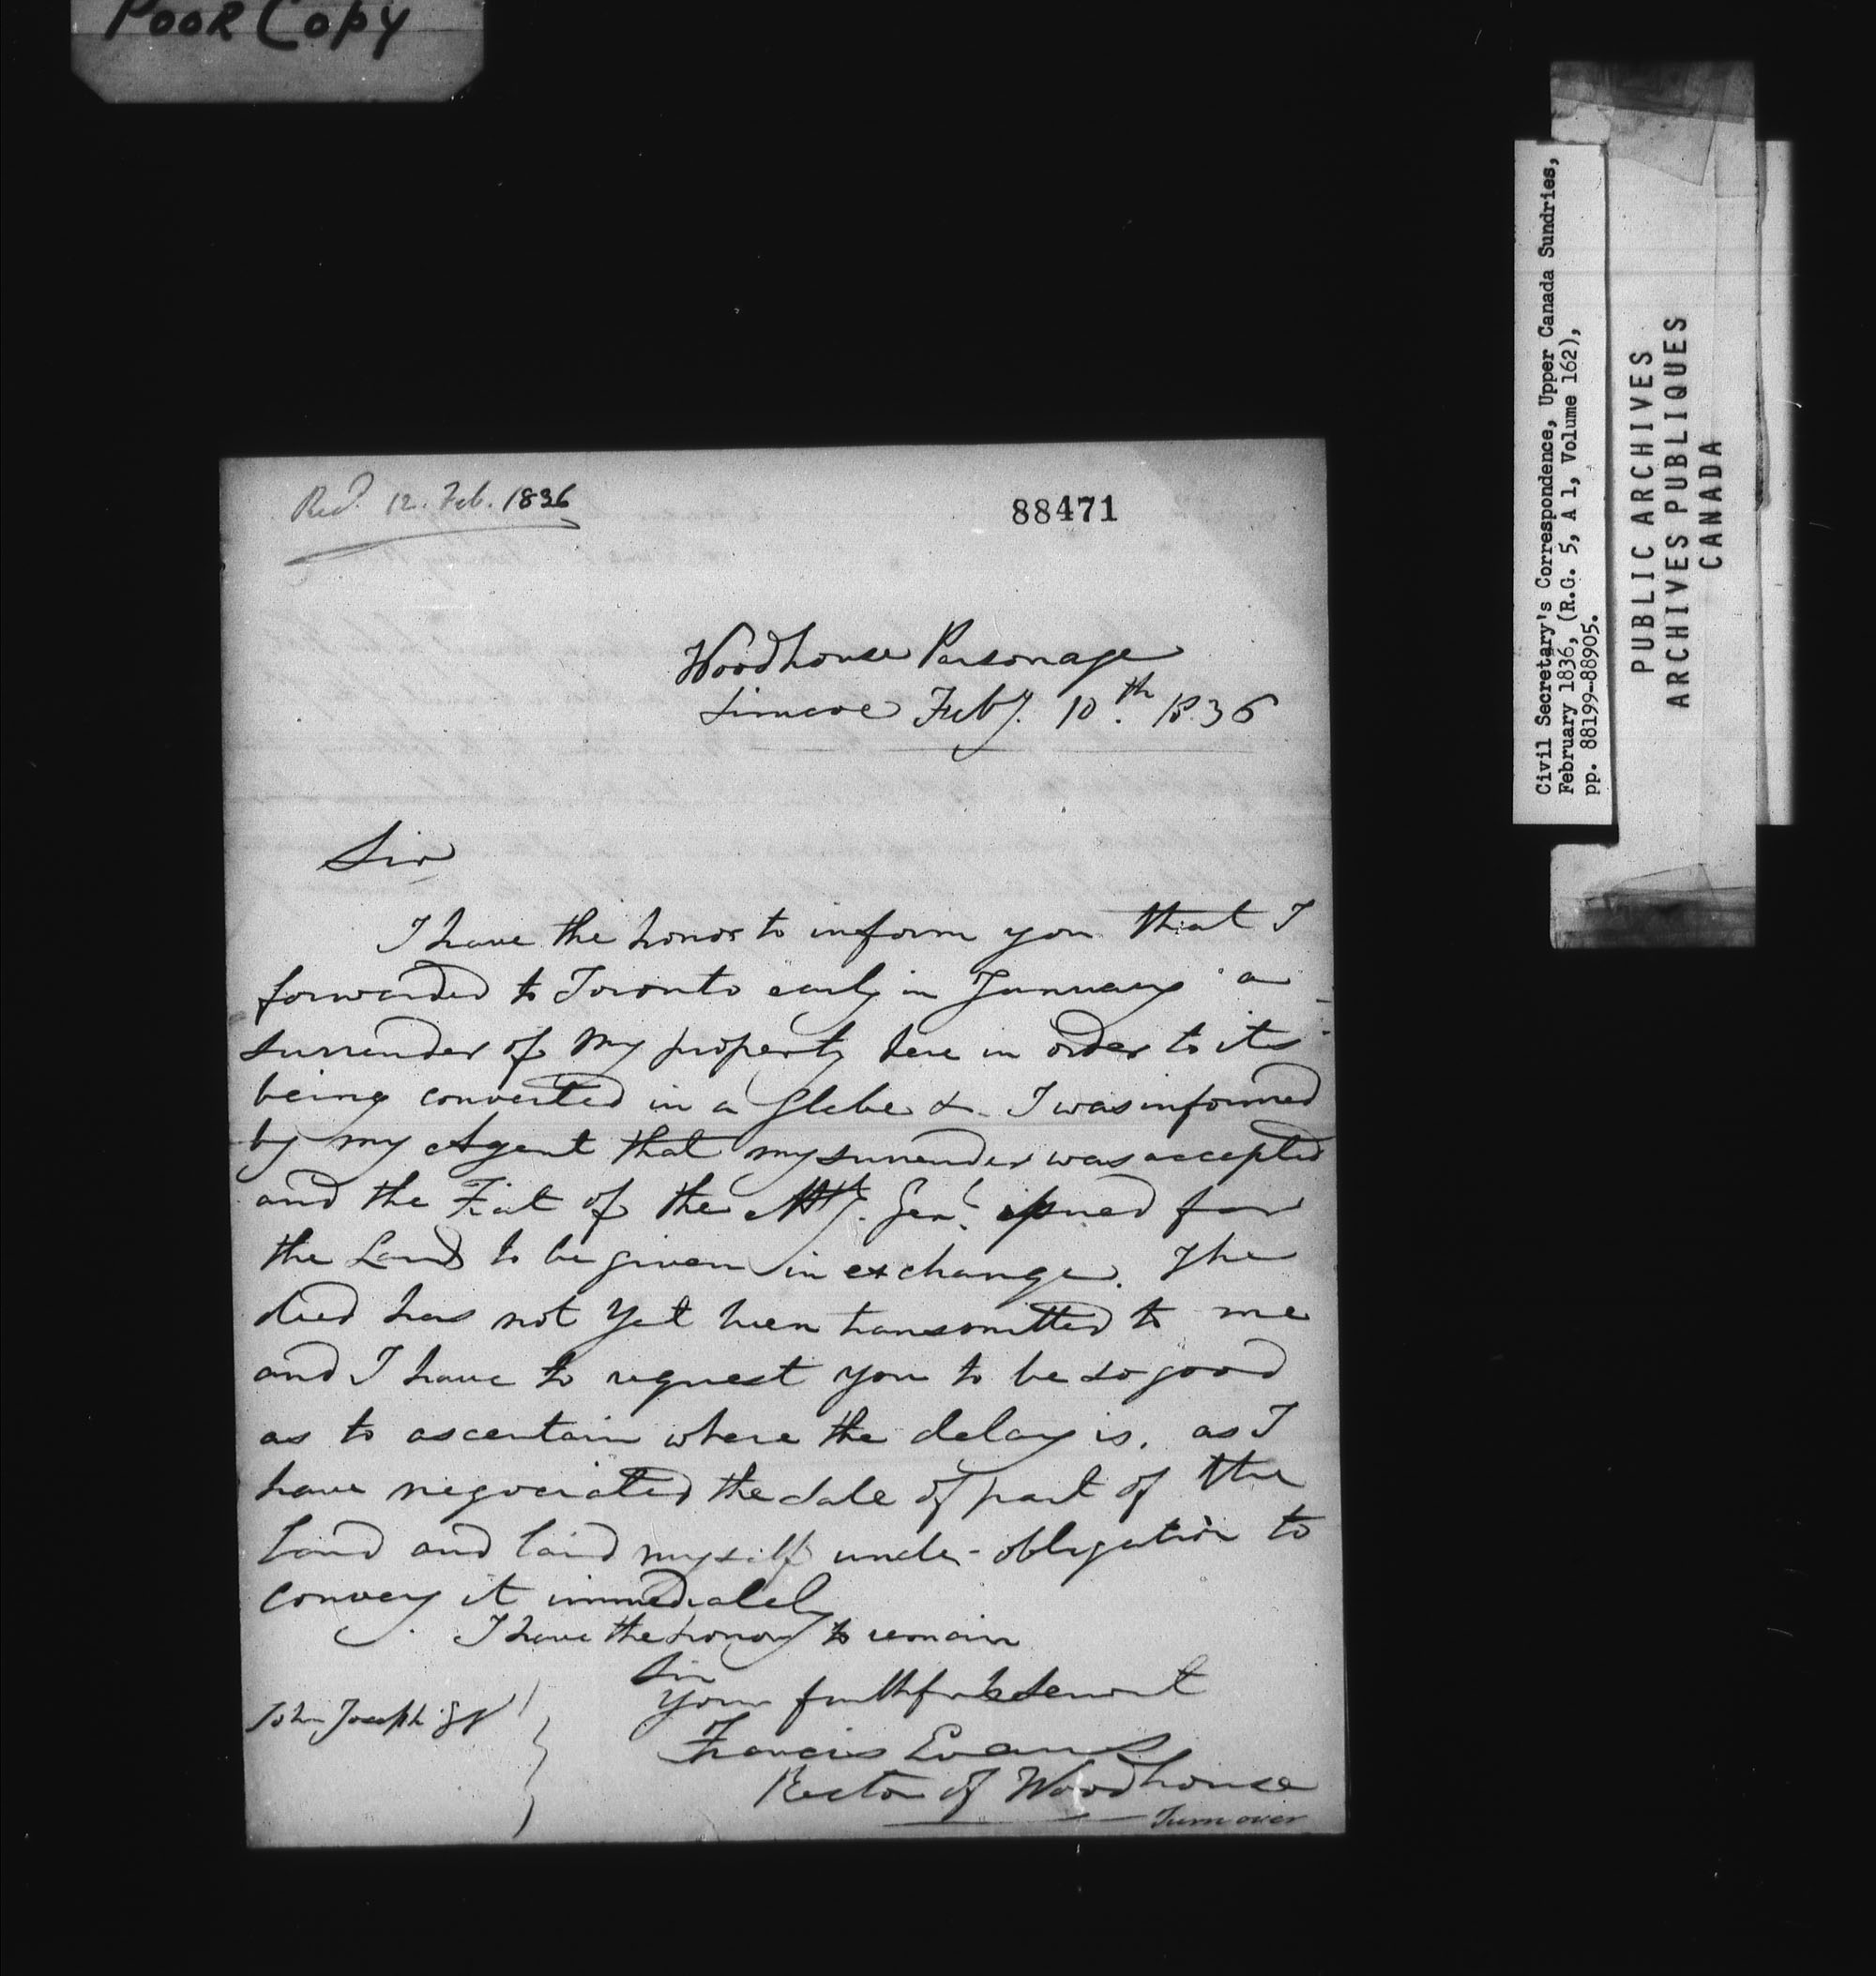 Poor Copy
Recd. 12. Feb. 1836
88471
Woodhouse Parsonage
Simcoe Feby. 10th. 1836
Sir
I have the honor to inform you that I
forwarded to Toronto early in January a
surrender of my property here in order to its
being converted in a Glebe &. I was informed
by my Agent that my surrender was accepted
and the Fiat of the Atty. Genl. issued for
the Land to be given in exchange. The
deed has not yet been transmitted to me
and I have to request you to be so good
as to ascertain where the delay is. as I
have negociated the sale of part of the
Land and laid myself under obligation to
convey it immediately
I have the honor to remain
Sir
Your faithful Servant
Francis Evans
Rector of Woodhouse
Turn over
John Joseph Esqr
Civil Secretary's Correspondence, Upper Canada Sundries,
February 1836, (R.G. 5, A 1, Volume 162),
pp. 88199-88905.
PUBLIC ARCHIVES
ARCHIVES PUBLIQUES
CANADA